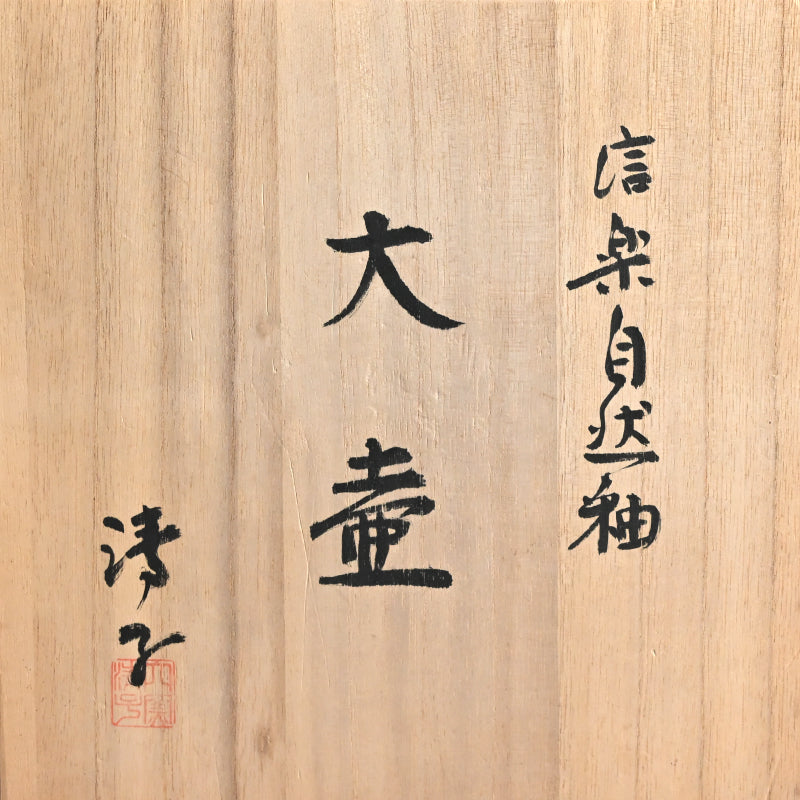 信楽自然釉
大壷
清子